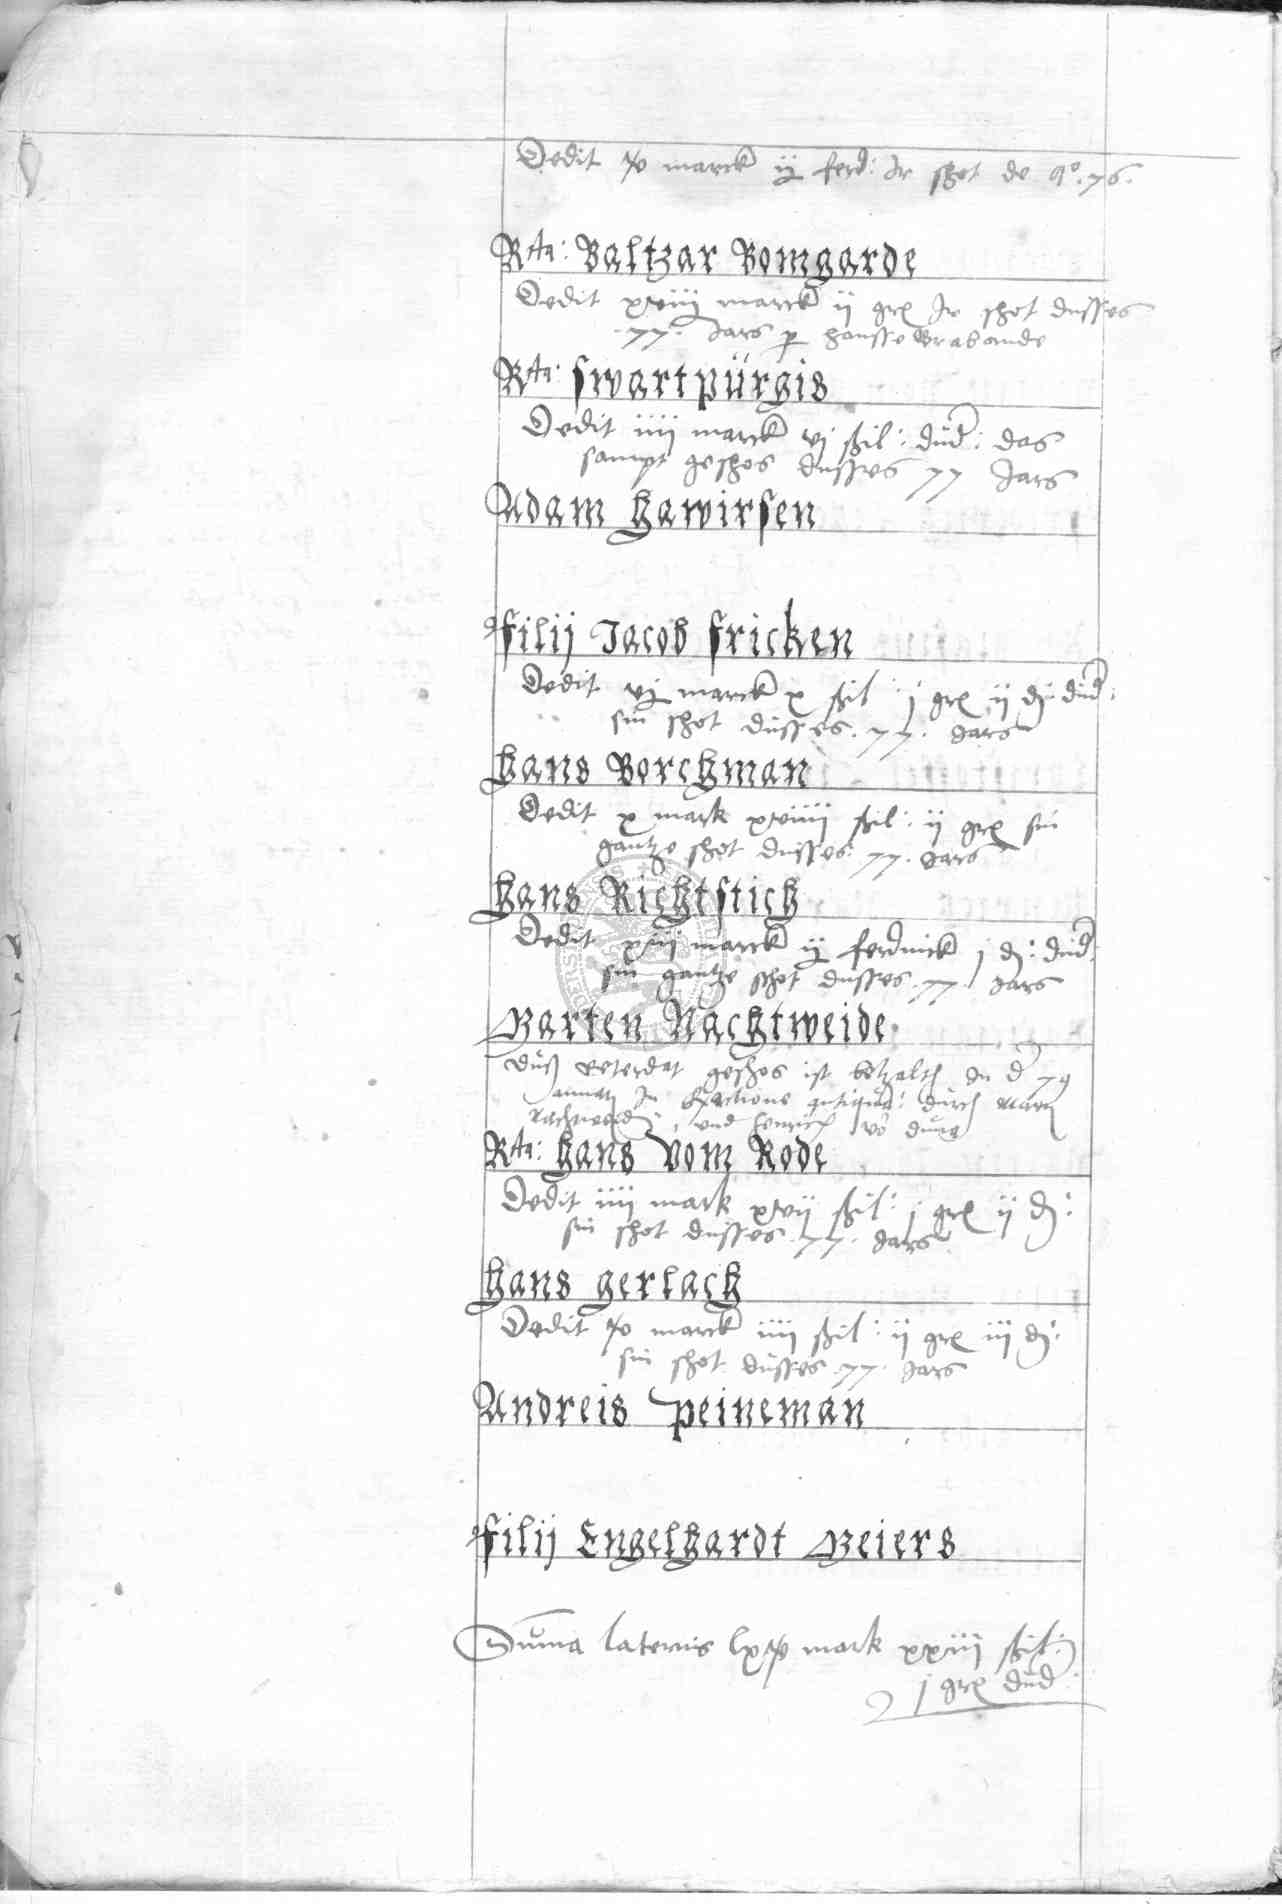 Dedit xv marck ij ferd: Ir schot de ao. 76.
Rta: Baltzar Bomgarde
Dedit xviij marck ij grl Ir schot dusses
.77. Jars p hansse Brabande
Rta: swartpürgis
Dedit iiij marck vj ßil: düd: das
sampt geschos dusses 77 Jars
Adam hawirsen
filij Jacob fricken
Dedit vj marck x ßil: j grl ij d: düd:
sin schot dusses .77. Jars
hans Borchman
Dedit x mark xviiij ßil: ij grl sin
gantze schot dusses .77. Jars
hans Richtstich
Dedit xiij marck ij ferdinck j d: düd:
sin gantze schot dusses .77. Jars
Barten Nachtweide
düß geschos ist betzalth 79
In Exactione antiqua: durch
vnd henrich
Rta: hans vom Rode
Dedit iiij mark xvij ßil: j grl ij d:
sin schot dusses .77. Jars
hans gerlach
Dedit xv marck iiij ßil: ij grl iij d:
sin schot dusses .77. Jars
Andreis peineman
filij Engelhardt Beiers
Suma lateris lxxv mark xxiij ßil:
j grl düd